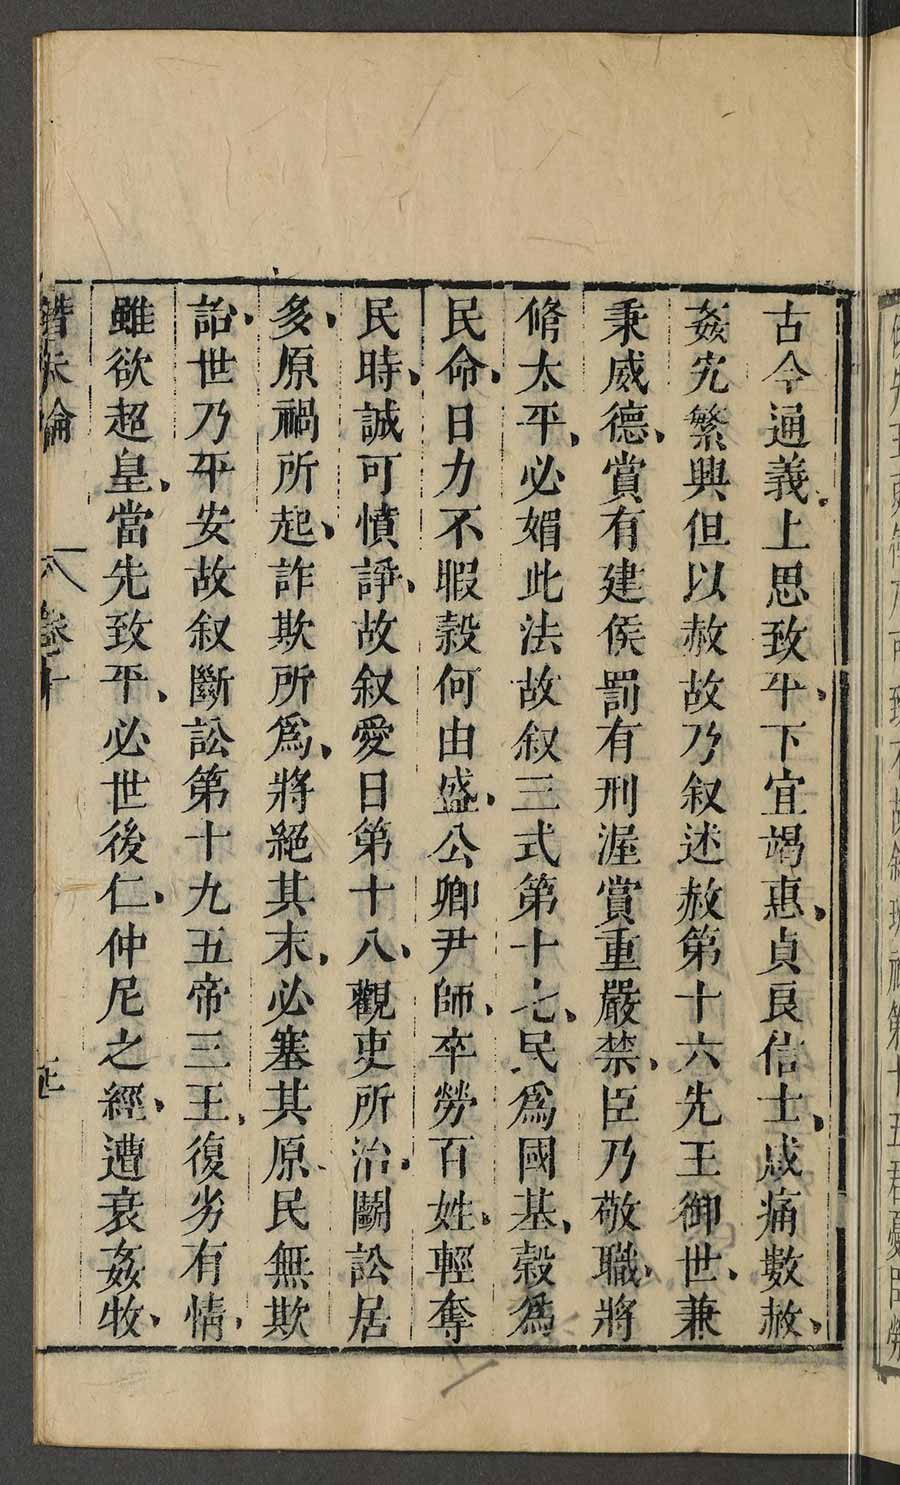 古今通義上思致平下宜竭惠貞良信士咸痛數赦
姦宄繁興但以赦故乃叙述赦第十六先王御世兼
秉威德賞有建侯罰有刑渥賞重嚴禁臣乃敬職將
脩太平必媚此法故叙三式第十七民爲國基穀爲
民命日力不暇穀何由盛公卿尹師卒勞百姓輕奪
民時誠可憤諍故叙愛日第十八觀吏所治鬭訟居
多原禍所起詐欺所爲將絕其末必塞其原民無欺
詒世乃平安故叙斷訟第十九五帝三王復劣有情
雖欲超皇當先致平必世後仁仲尼之經遭衰姦牧
卷十